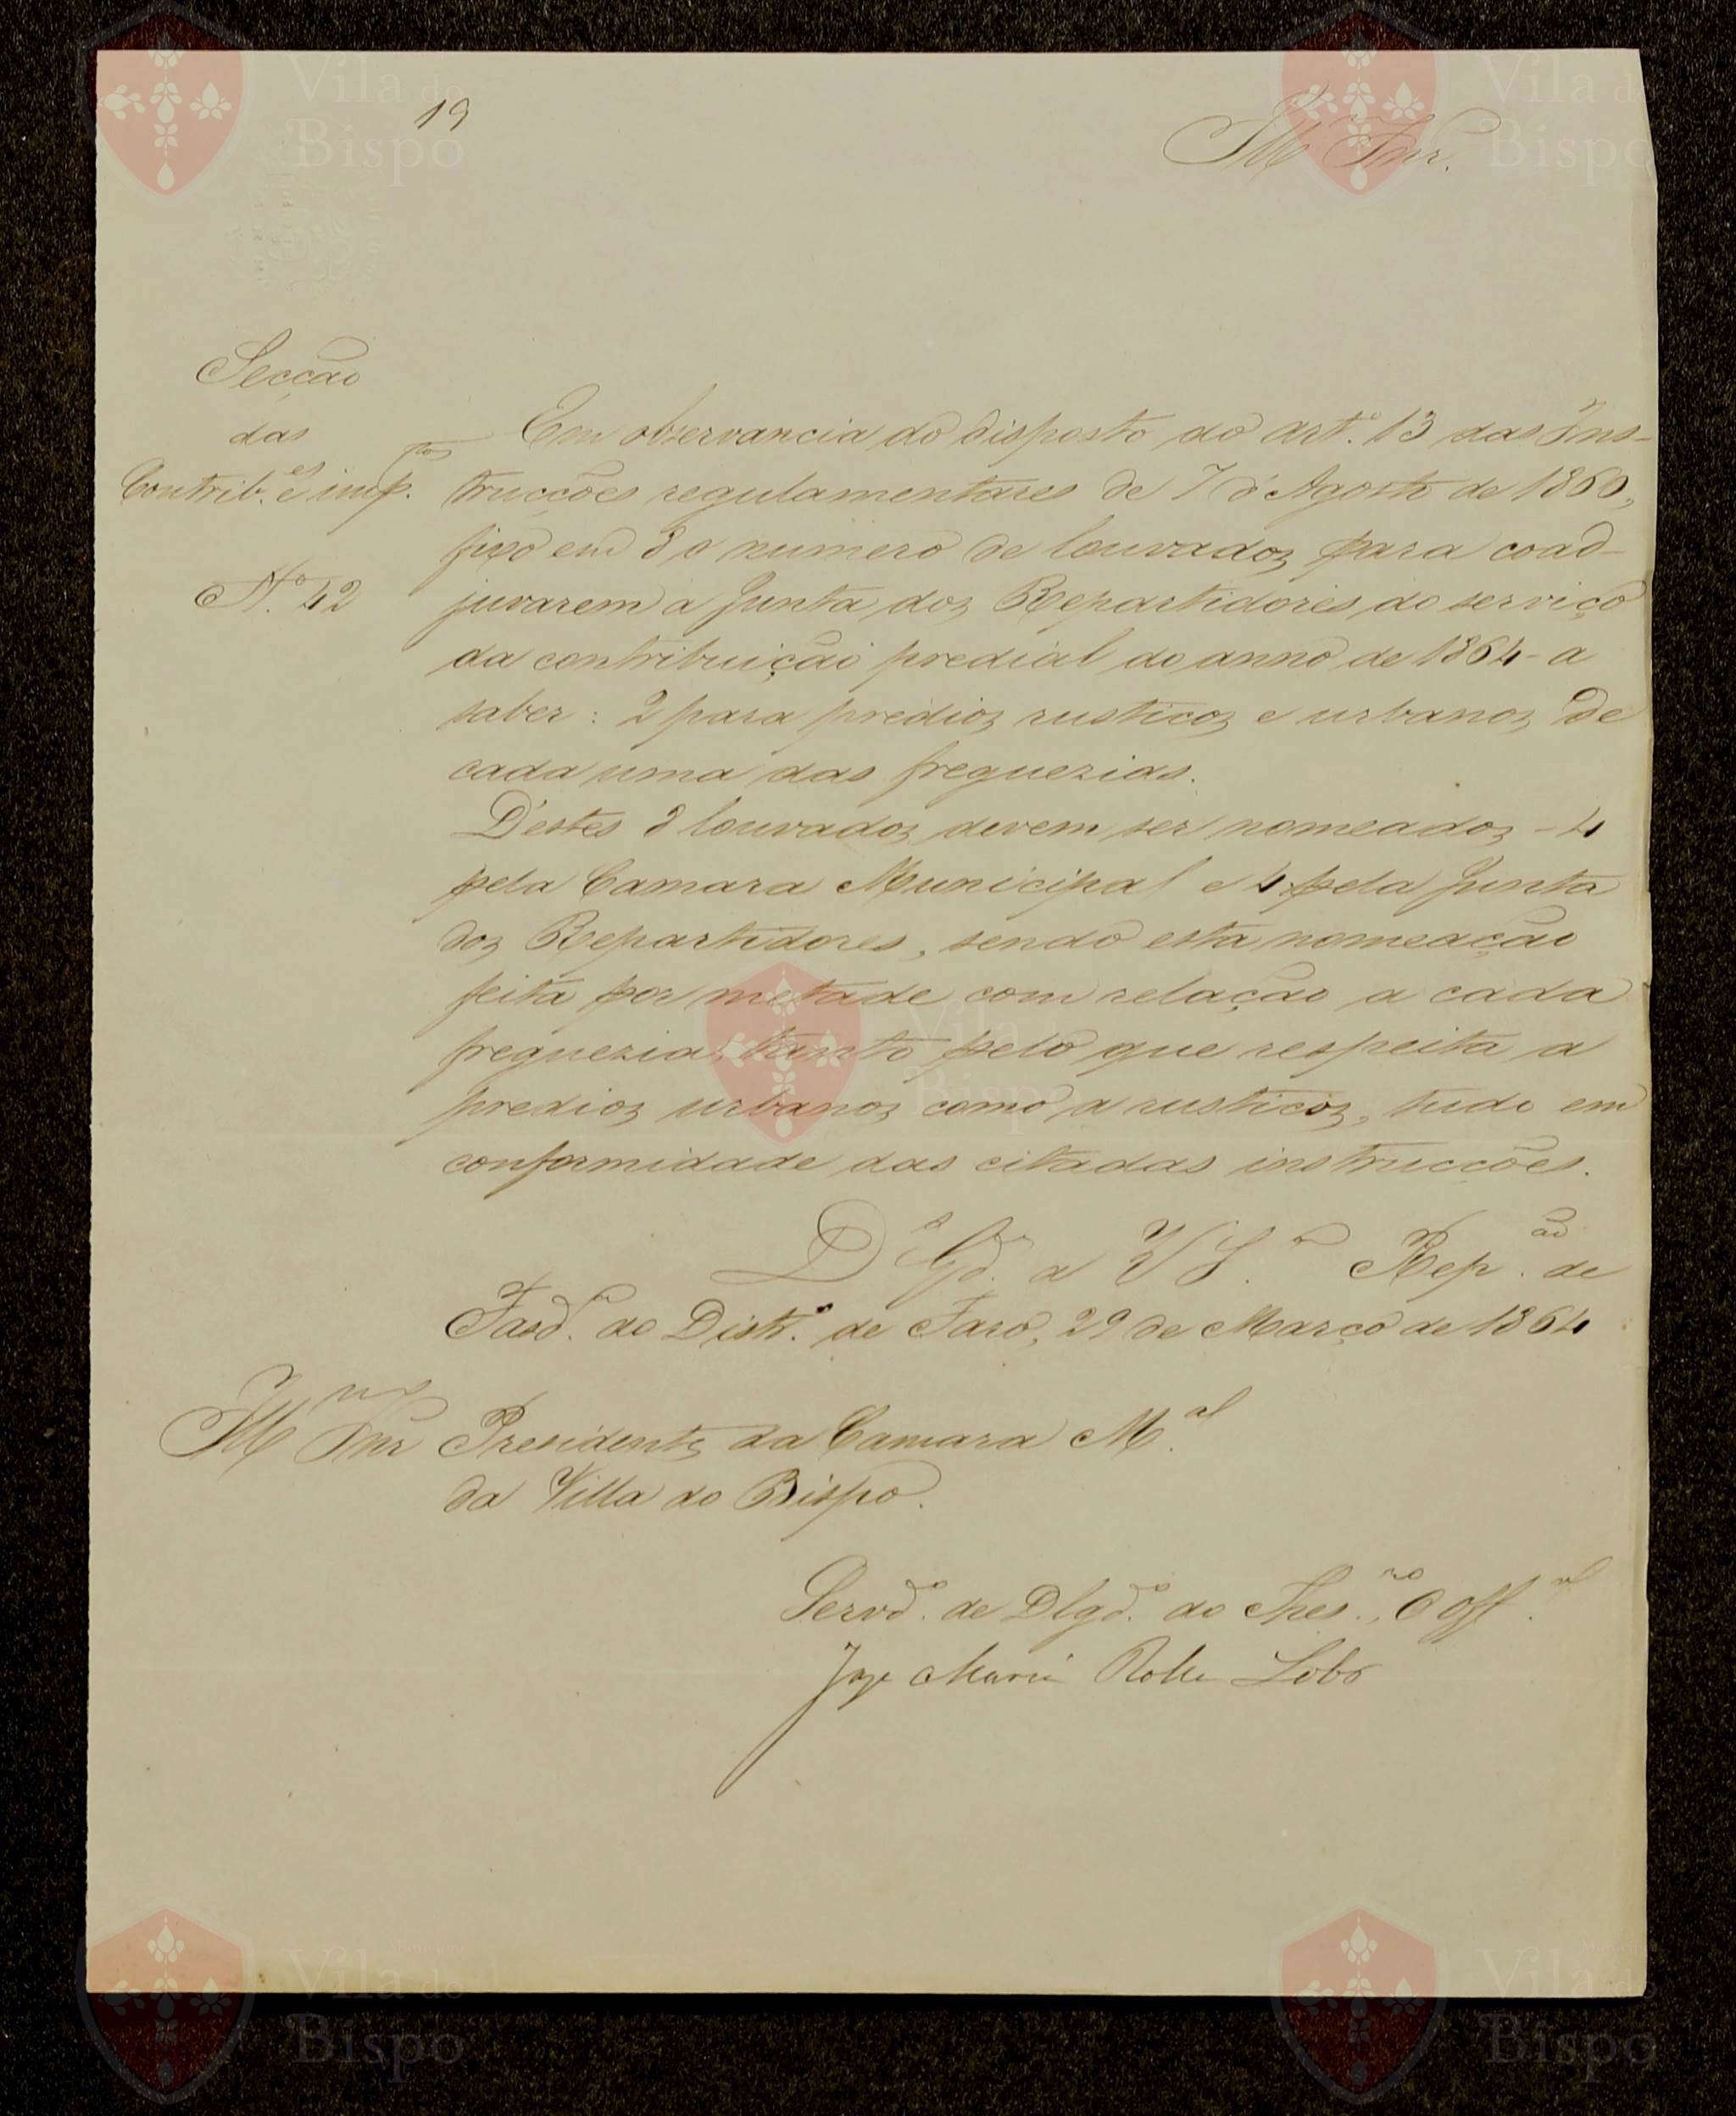 19
Ill.mo Snr.
Secção
das
Contrib.es e imp.tos
N.o 42
Em observancia do disposto no art.o 13 das Ins-
trucções regulamentares de 7 d'Agosto de 1860,
fixo em 8 o numero de louvados para coad-
juvarem a Junta dos Repartidores do serviço
da contribuição predial do anno de 1864 - a
saber: 2 para predios rusticos e urbanos de
cada uma das freguezias.
D'estes 8 louvados devem ser nomeados - 4
pela Camara Municipal e 4 pela Junta
dos Repartidores, sendo esta nomeação
feita por metade com relação a cada
freguezia, tanto pelo que respeita a
predios urbanos como a rusticos, tudo em
conformidade das citadas instrucções.
D.s G.de a V S.a Rep.ão de
Fasd.a do Distr.o de Faro, 29 de Março de 1864
Ill.mo Snr Presidente da Camara M.al
da Villa do Bispo.
Servd.o de Dlgd.o do Thes.ro, O Off.al
Joze Maria Lobo
Vila do
Bispo
Vila do
Bispo
Vila
Bispo
Vila do
Bispo
Vila do
Bispo